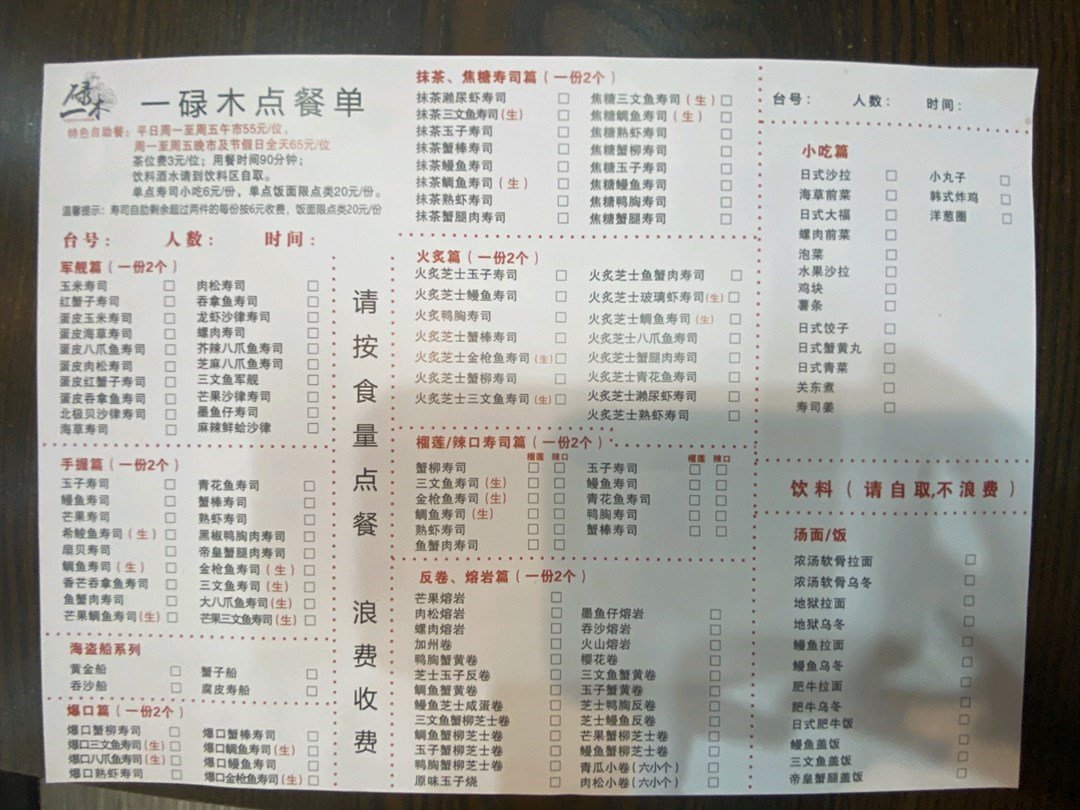 碌木
一碌木点餐单
特色自助餐：平日周一至周五午市55元/位，
周一至周五晚市及节假日全天65元/位
茶位费3元/位；用餐时间90分钟；
饮料酒水请到饮料区自取。
单点寿司小吃6元/份，单点饭面限点类20元/份。
温馨提示：寿司自助剩余超过两件的每份按6元收费，饭面限点类20元/份
台号： 人数： 时间：
军舰篇（一份2个）
玉米寿司 □ 肉松寿司 □
红蟹子寿司 □ 吞拿鱼寿司 □
蛋皮玉米寿司 □ 龙虾沙律寿司 □
蛋皮海草寿司 □ 螺肉寿司 □
蛋皮八爪鱼寿司 □ 芥辣八爪鱼寿司 □
蛋皮肉松寿司 □ 芝麻八爪鱼寿司 □
蛋皮红蟹子寿司 □ 三文鱼军舰 □
蛋皮吞拿鱼寿司 □ 芒果沙律寿司 □
北极贝沙律寿司 □ 墨鱼仔寿司 □
海草寿司 □ 麻辣鲜蛤沙律 □
手握篇（一份2个）
玉子寿司 □ 青花鱼寿司 □
鳗鱼寿司 □ 蟹棒寿司 □
芒果寿司 □ 熟虾寿司 □
希鲮鱼寿司（生） □ 黑椒鸭胸肉寿司 □
扇贝寿司 □ 帝皇蟹腿肉寿司 □
鲷鱼寿司（生） □ 金枪鱼寿司（生） □
香芒吞拿鱼寿司 □ 三文鱼寿司（生） □
鱼蟹肉寿司 □ 大八爪鱼寿司（生） □
芒果鲷鱼寿司（生） □ 芒果三文鱼寿司（生） □
海盗船系列
黄金船 □ 蟹子船 □
吞沙船 □ 腐皮寿船 □
爆口篇（一份2个）
爆口蟹柳寿司 □ 爆口蟹棒寿司 □
爆口三文鱼寿司（生） □ 爆口鲷鱼寿司（生） □
爆口八爪鱼寿司（生） □ 爆口鳗鱼寿司 □
爆口熟虾寿司 □ 爆口金枪鱼寿司（生） □
请按食量点餐 浪费收费
抹茶、焦糖寿司篇（一份2个）
抹茶濑尿虾寿司 □ 焦糖三文鱼寿司（生） □
抹茶三文鱼寿司（生） □ 焦糖鲷鱼寿司（生） □
抹茶玉子寿司 □ 焦糖熟虾寿司 □
抹茶蟹棒寿司 □ 焦糖蟹柳寿司 □
抹茶鳗鱼寿司 □ 焦糖玉子寿司 □
抹茶鲷鱼寿司（生） □ 焦糖鳗鱼寿司 □
抹茶熟虾寿司 □ 焦糖鸭胸寿司 □
抹茶蟹腿肉寿司 □ 焦糖蟹腿寿司 □
火炙篇（一份2个）
火炙芝士玉子寿司 □ 火炙芝士鱼蟹肉寿司 □
火炙芝士鳗鱼寿司 □ 火炙芝士玻璃虾寿司（生） □
火炙鸭胸寿司 □ 火炙芝士鲷鱼寿司（生） □
火炙芝士蟹棒寿司 □ 火炙芝士八爪鱼寿司 □
火炙芝士金枪鱼寿司（生） □ 火炙芝士蟹腿肉寿司 □
火炙芝士蟹柳寿司 □ 火炙芝士青花鱼寿司 □
火炙芝士三文鱼寿司（生） □ 火炙芝士濑尿寿司 □
火炙芝士熟虾寿司 □
榴莲/辣口寿司篇（一份2个）
榴莲 辣口 榴莲 辣口
蟹柳寿司 □ □ 玉子寿司 □ □
三文鱼寿司（生） □ □ 鳗鱼寿司 □ □
金枪鱼寿司（生） □ □ 青花鱼寿司 □ □
鲷鱼寿司（生） □ □ 鸭胸寿司 □ □
熟虾寿司 □ □ 蟹棒寿司 □ □
鱼蟹肉寿司 □ □
反卷、熔岩篇（一份2个）
芒果熔岩 □
肉松熔岩 □ 墨鱼仔熔岩 □
螺肉熔岩 □ 吞沙熔岩 □
加州卷 □ 火山熔岩 □
鸭胸蟹黄卷 □ 樱花卷 □
芝士玉子反卷 □ 三文鱼蟹黄卷 □
鲷鱼蟹黄卷 □ 玉子蟹黄卷 □
鳗鱼芝士咸蛋卷 □ 芝士鸭胸反卷 □
三文鱼蟹柳芝士卷 □ 芝士鳗鱼反卷 □
鲷鱼蟹柳芝士卷 □ 芒果蟹柳芝士卷 □
玉子蟹柳芝士卷 □ 鳗鱼蟹柳芝士卷 □
鸭胸蟹柳芝士卷 □ 青瓜小卷（六小个） □
原味玉子烧 □ 肉松小卷（六小个） □
台号： 人数： 时间：
小吃篇
日式沙拉 □ 小丸子 □
海草前菜 □ 韩式炸鸡 □
日式大福 □ 洋葱圈 □
螺肉前菜 □
泡菜 □
水果沙拉 □
鸡块 □
薯条 □
日式饺子 □
日式蟹黄丸 □
日式青菜 □
关东煮 □
寿司姜 □
饮料（请自取,不浪费）
汤面/饭
浓汤软骨拉面 □
浓汤软骨乌冬 □
地狱拉面 □
地狱乌冬 □
鳗鱼拉面 □
鳗鱼乌冬 □
肥牛拉面 □
肥牛乌冬 □
日式肥牛饭 □
鳗鱼盖饭 □
三文鱼盖饭 □
帝皇蟹腿盖饭 □